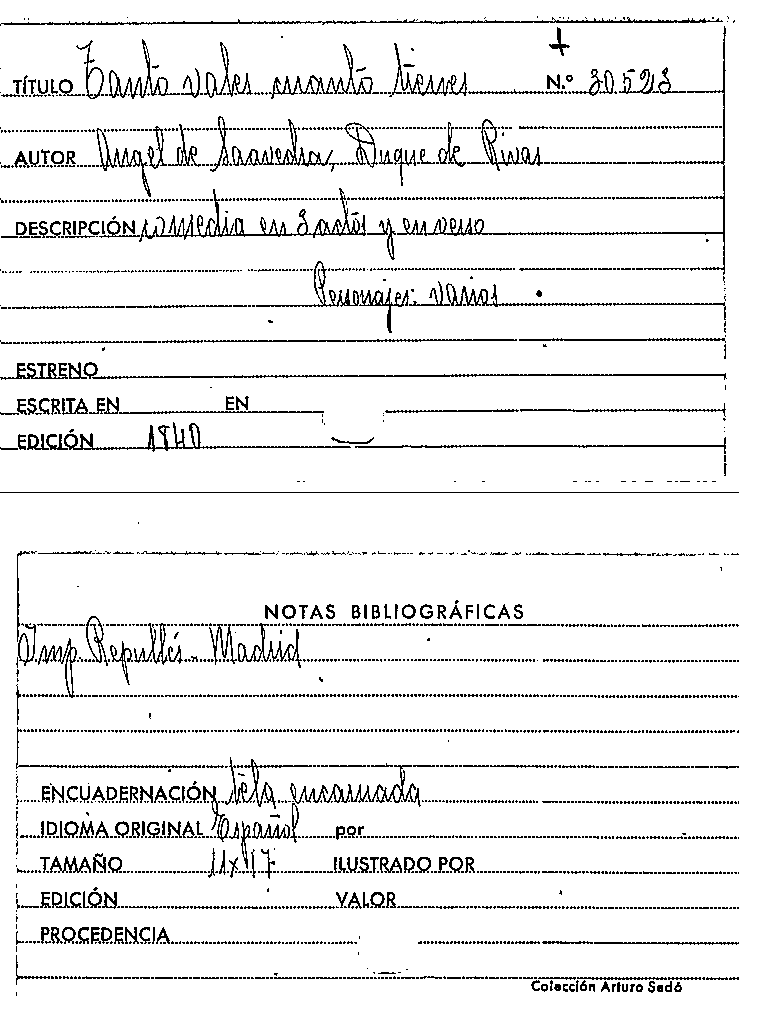 +
TÍTULO Tanto vales cuanto tienes N.º 30523
AUTOR Angel de Saavedra, Duque de Rivas
DESCRIPCIÓN comedia en 3 actos y en verso
Personajes: varios
ESTRENO
ESCRITA EN EN
EDICIÓN 1840
NOTAS BIBLIOGRÁFICAS
Imp. Repullés - Madrid
ENCUADERNACIÓN tela encarnada
IDIOMA ORIGINAL Español por
TAMAÑO 11x17 ILUSTRADO POR
EDICIÓN VALOR
PROCEDENCIA
Colección Arturo Sedó